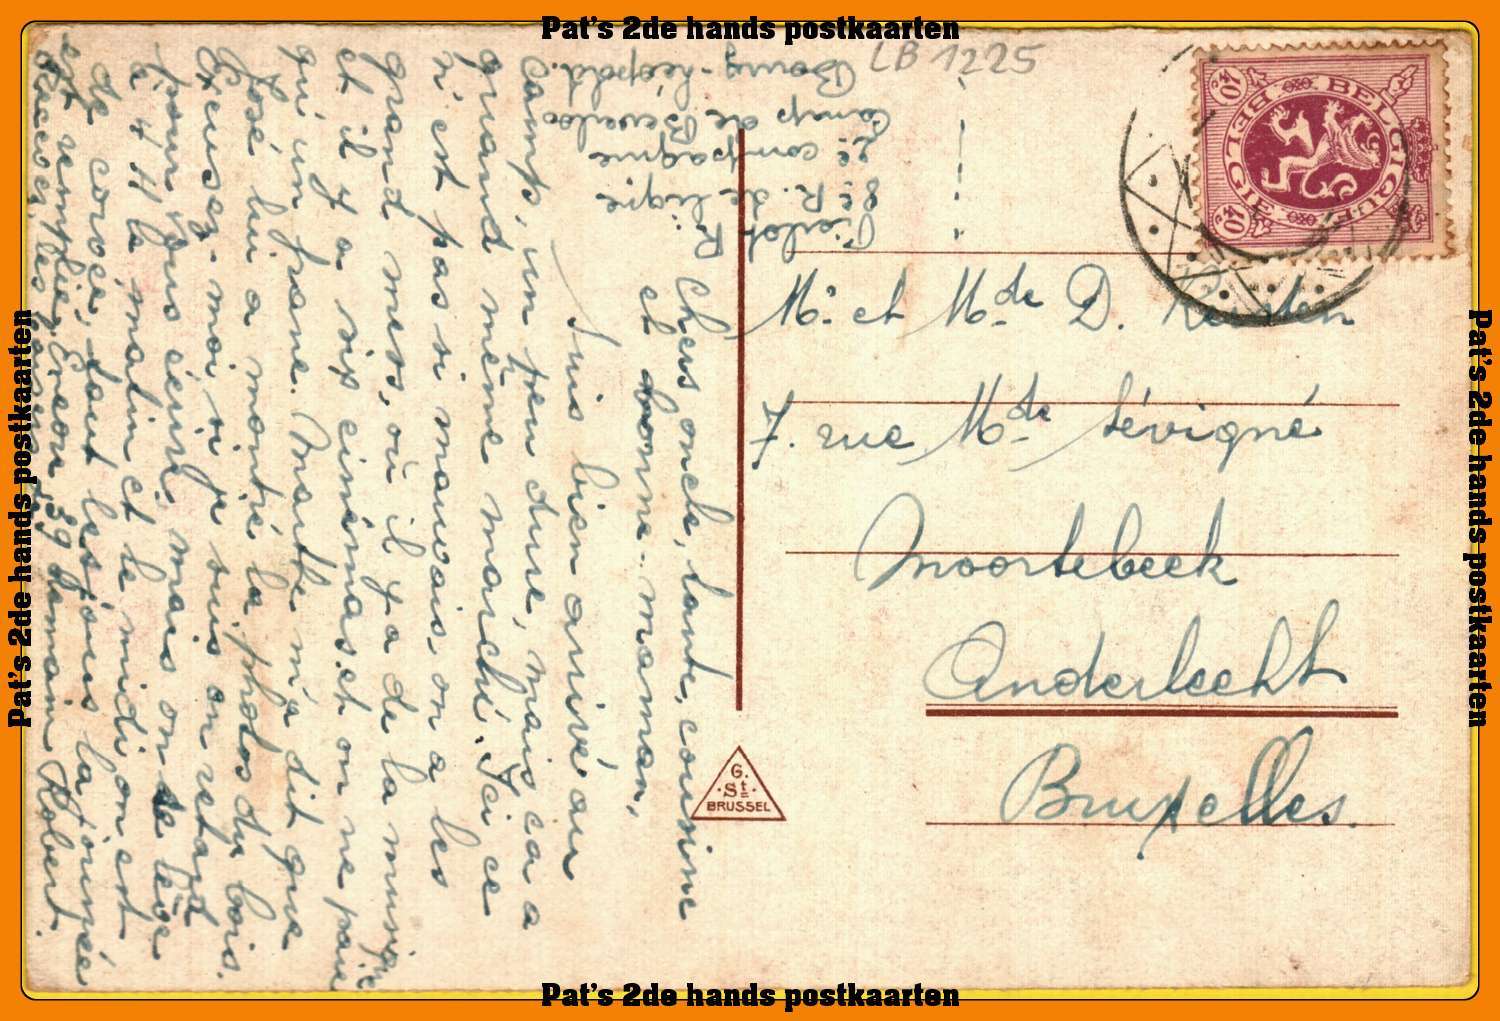 Pat's 2de hands postkaarten
LB 1225
BELGIQUE BELGIE
40 c
40 c
Pierlot R
8e R. de ligne
2e compagnie
Camp de Beverloo
Bourg-Léopold.
Mr. et Mde D.
7. rue Mde Sévigné
Moortebeek
Anderlecht
Bruxelles.
G.
St.
BRUSSEL
Chers oncle, tante, cousine
et bonne-maman,
Suis bien arrivé au
camp, un peu dure, mais ca a
quand même marché. Ici ce
n'est pas si mauvais, on a les
grand mess, où il y a de la musique
et il y a six cinémas. et on ne paie
qu'un franc. Marthe m'a dit que
José lui a montré la photos du bois.
Excusez-moi si je suis en retard
pour vous écrire, mais on se lève
à 4 H la matin et le midi on est
de corvée, tout les jours la journée
est remplie. Encore 39 demain
Recevez les Robert.
Pat's 2de hands postkaarten
Pat's 2de hands postkaarten
Pat's 2de hands postkaarten